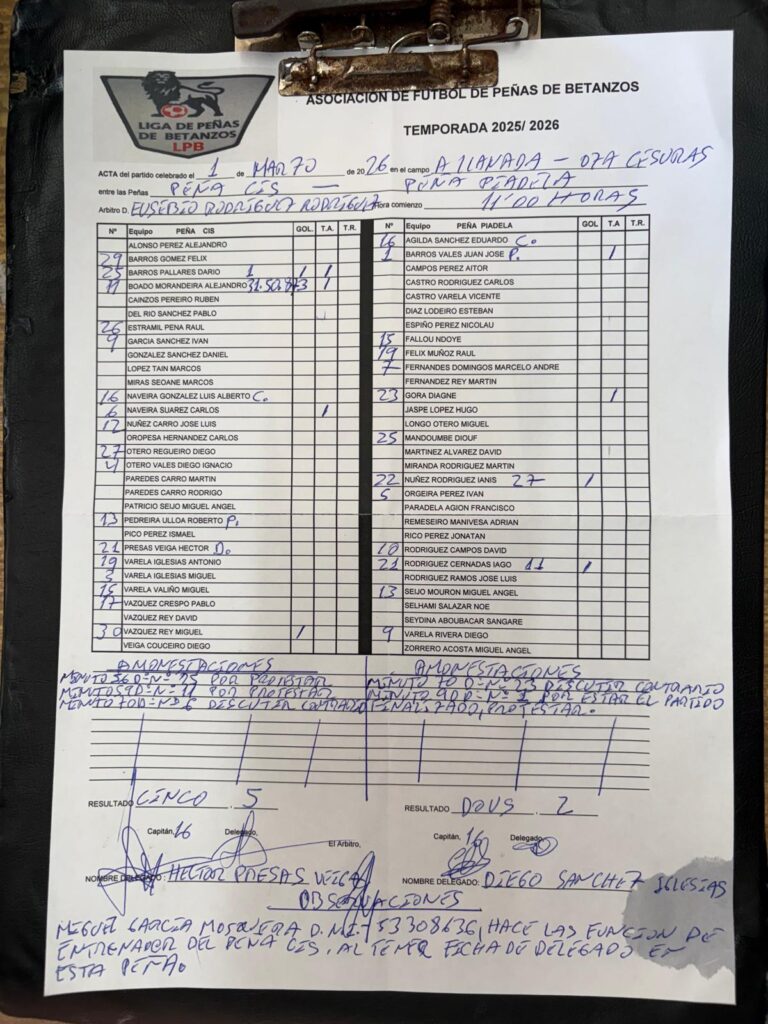 LIGA DE PEÑAS
DE BETANZOS
LPB
ASOCIACION DE FUTBOL DE PEÑAS DE BETANZOS
TEMPORADA 2025/ 2026
ACTA del partido celebrado el 1 de MARZO de 2026 en el campo A LLANADA - OZA CESURAS
entre las Peñas PEÑA CIS - PEÑA PIADELA
Arbitro D. EUSEBIO RODRIGUEZ RODRIGUEZ Hora comienzo 11'00 HORAS
Nº Equipo PEÑA CIS GOL. T.A. T.R.
ALONSO PEREZ ALEJANDRO
29 BARROS GOMEZ FELIX
25 BARROS PALLARES DARIO 1 / /
11 BOADO MORANDEIRA ALEJANDRO 3 /
CAINZOS PEREIRO RUBEN
DEL RIO SANCHEZ PABLO
26 ESTRAMIL PENA RAUL
9 GARCIA SANCHEZ IVAN
GONZALEZ SANCHEZ DANIEL
LOPEZ TAIN MARCOS
MIRAS SEOANE MARCOS
16 NAVEIRA GONZALEZ LUIS ALBERTO C.
6 NAVEIRA SUAREZ CARLOS /
12 NUÑEZ CARRO JOSE LUIS
OROPESA HERNANDEZ CARLOS
27 OTERO REGUEIRO DIEGO
4 OTERO VALES DIEGO IGNACIO
PAREDES CARRO MARTIN
PAREDES CARRO RODRIGO
PATRICIO SEIJO MIGUEL ANGEL
13 PEDREIRA ULLOA ROBERTO P.
PICO PEREZ ISMAEL
21 PRESAS VEIGA HECTOR D.
19 VARELA IGLESIAS ANTONIO
5 VARELA IGLESIAS MIGUEL
15 VARELA VALIÑO MIGUEL
17 VAZQUEZ CRESPO PABLO
VAZQUEZ REY DAVID
30 VAZQUEZ REY MIGUEL /
VEIGA COUCEIRO DIEGO
Nº Equipo PEÑA PIADELA GOL T.A T.R.
16 AGILDA SANCHEZ EDUARDO C.
1 BARROS VALES JUAN JOSE P. /
CAMPOS PEREZ AITOR
CASTRO RODRIGUEZ CARLOS
CASTRO VARELA VICENTE
DIAZ LODEIRO ESTEBAN
ESPIÑO PEREZ NICOLAU
15 FALLOU NDOYE
19 FELIX MUÑOZ RAUL
7 FERNANDES DOMINGOS MARCELO ANDRE
FERNANDEZ REY MARTIN
23 GORA DIAGNE /
JASPE LOPEZ HUGO
LONGO OTERO MIGUEL
25 MANDOUMBE DIOUF
MARTINEZ ALVAREZ DAVID
MIRANDA RODRIGUEZ MARTIN
22 NUÑEZ RODRIGUEZ IANIS 27 /
5 ORGEIRA PEREZ IVAN
PARADELA AGION FRANCISCO
REMESEIRO MANIVESA ADRIAN
RICO PEREZ JONATAN
10 RODRIGUEZ CAMPOS DAVID
21 RODRIGUEZ CERNADAS IAGO 11 /
RODRIGUEZ RAMOS JOSE LUIS
13 SEIJO MOURON MIGUEL ANGEL
SELHAMI SALAZAR NOE
SEYDINA ABOUBACAR SANGARE
9 VARELA RIVERA DIEGO
ZORRERO ACOSTA MIGUEL ANGEL
AMONESTACIONES
MINUTO 56 D-Nº 25 POR PROTESTAR
MINUTO 59 D-Nº 11 POR PROTESTAR
MINUTO 70 D-Nº 6 DISCUTIR CONTRARIO
AMONESTACIONES
MINUTO 70 D-Nº 23 DISCUTIR CONTRARIO
MINUTO 90 D-Nº 1 POR ESTAR EL PARTIDO
FINALIZADO, PROTESTAR.
RESULTADO CINCO . 5
RESULTADO DOUS . 2
Capitán, 16 Delegado,
El Arbitro,
Capitán, 16 Delegado,
NOMBRE DELEGADO: HECTOR PRESAS VEIGA
NOMBRE DELEGADO: DIEGO SANCHEZ IGLESIAS
OBSERVACIONES
MIGUEL GARCIA MOSQUERA D.N.I-53308636, HACE LAS FUNCION DE
ENTRENADOR DEL PEÑA CIS, AL TENER FICHA DE DELEGADO EN
ESTA PEÑA.